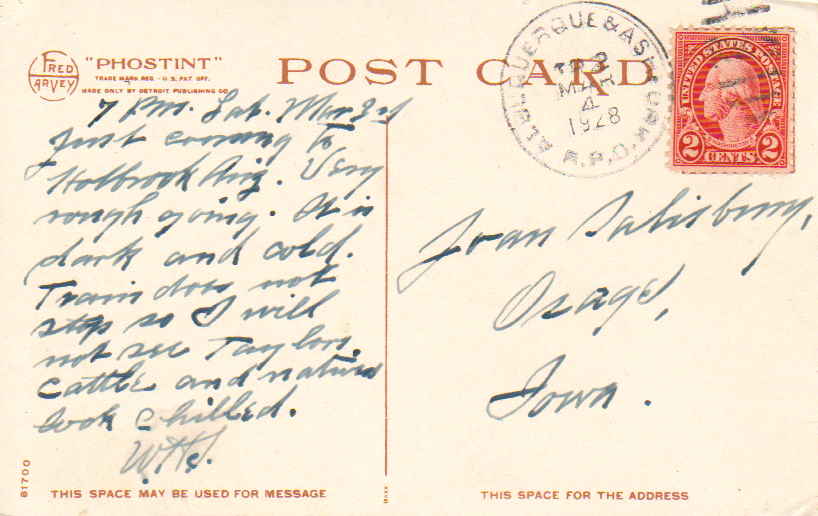 FRED HARVEY
"PHOSTINT"
TRADE MARK REG. - U.S. PAT. OFF.
MADE ONLY BY DETROIT PUBLISHING CO.
POST CARD
ALBUQUERQUE & ASH FORK
TR 3
MAR
4
1928
R.P.O.
UNITED STATES POSTAGE
2 CENTS 2
7 Pm. Sat. Mar 3rd
Just coming to
Holbrook Ariz. Very
rough going. It is
dark and cold.
Train does not
stop so I will
not see Taylors.
Cattle and natives
look chilled.
W.H.S.
Joan Salisbury,
Osage,
Iowa.
81700
THIS SPACE MAY BE USED FOR MESSAGE
THIS SPACE FOR THE ADDRESS